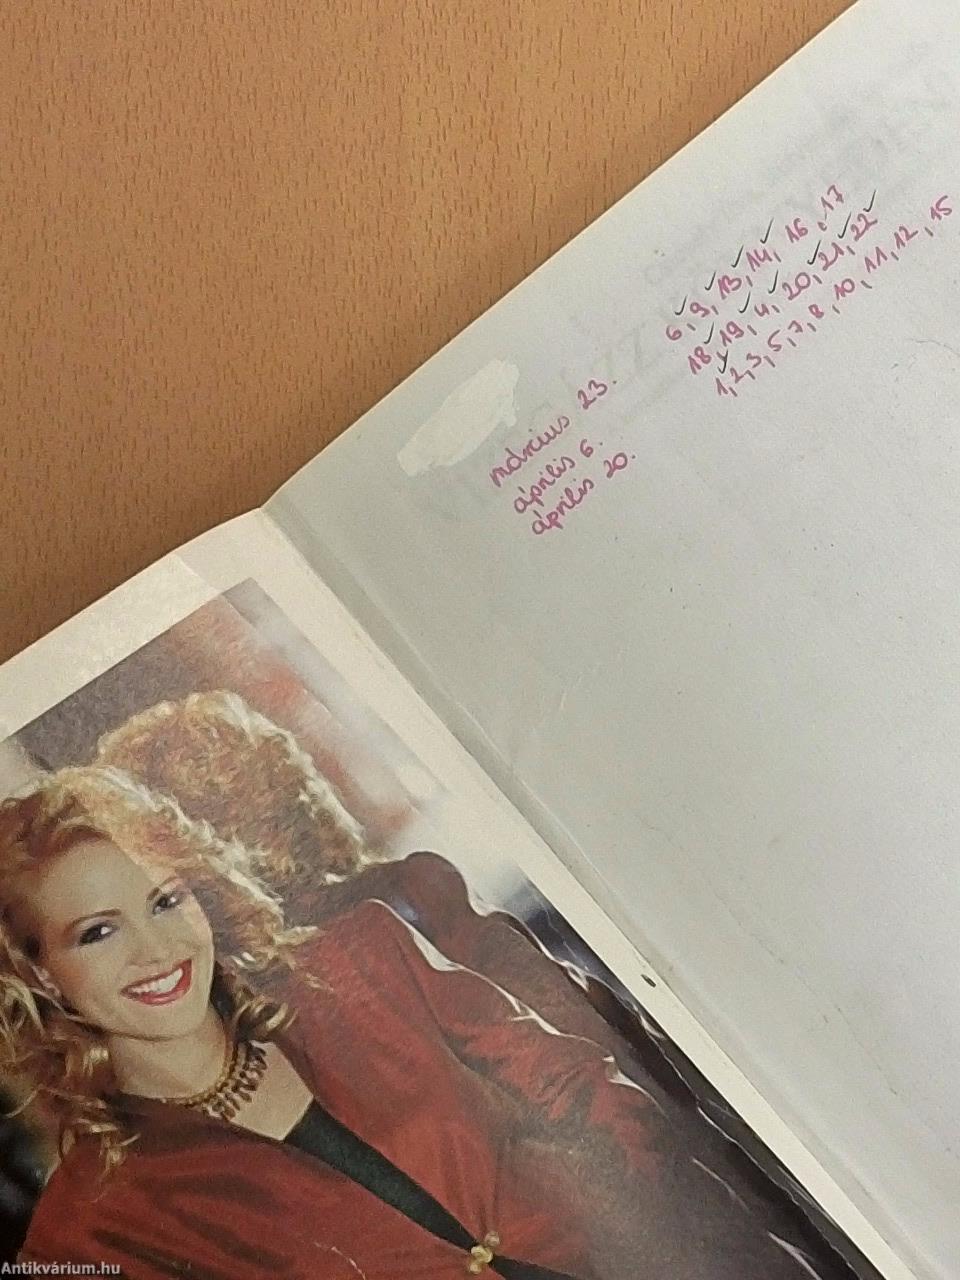 március 23.
április 6.
április 20.
6, 9, 13, 14, 16, 17
18, 19, 4, 20, 21, 22
1, 2, 3, 5, 7, 8, 10, 11, 12, 15
Antikvárium.hu